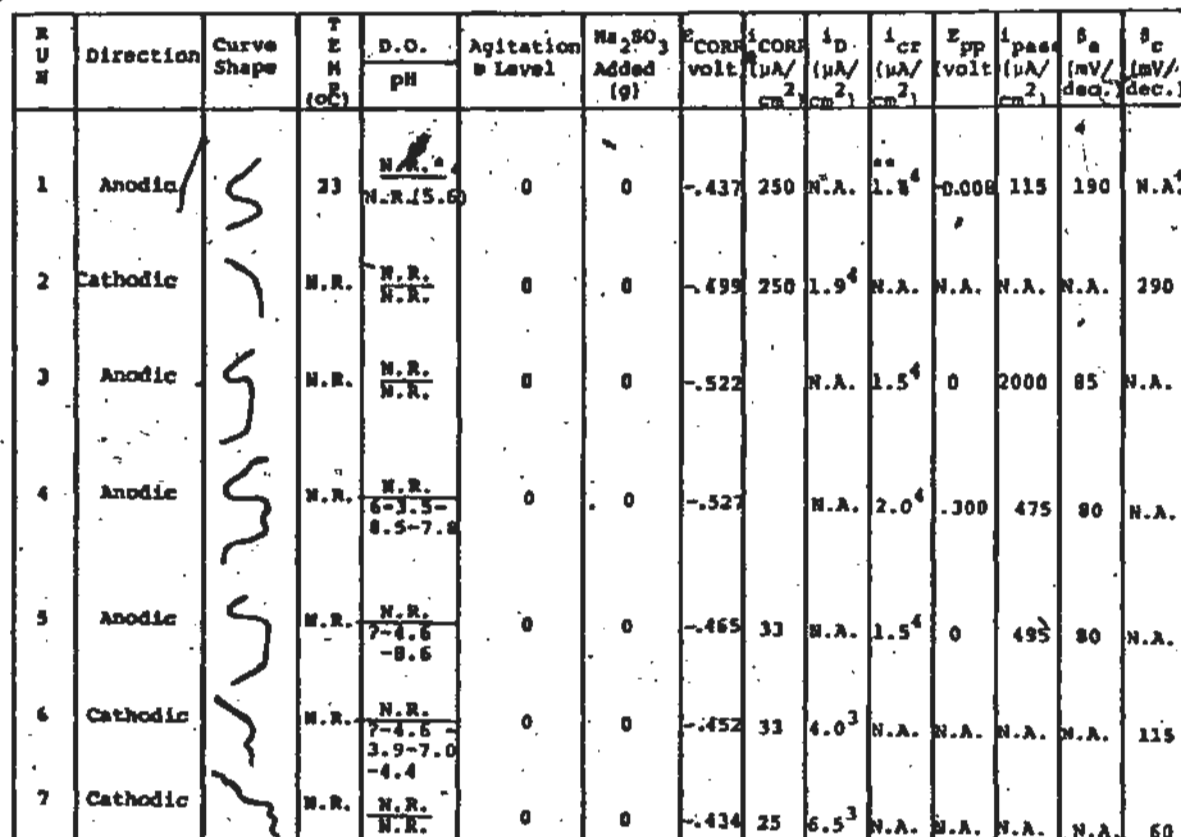 RUN Direction Curve Shape TEMP. (oC) D.O. / pH Agitation Level Na2SO3 Added (g) ECORR volt iCORR (µA/cm2) iD (µA/cm2) icr (µA/cm2) Epp (volt) ipass (µA/cm2) βa (mV/dec.) βc (mV/dec.)
1 Anodic 23 N.R.* / N.R.(5.6) 0 0 -.437 250 N.A. ** -0.008 115 190 N.A.
2 Cathodic N.R. N.R. / N.R. 0 0 -.499 250 1.9^4 N.A. N.A. N.A. N.A. 290
3 Anodic N.R. N.R. / N.R. 0 0 -.522 N.A. 1.5^4 0 2000 85 N.A.
4 Anodic N.R. N.R. / 6-3.5- 8.5-7.8 0 0 -.527 N.A. 2.0^4 .300 475 80 N.A.
5 Anodic N.R. N.R. / ?-4.6 -8.6 0 0 -.465 33 N.A. 1.5^4 0 495 80 N.A.
6 Cathodic N.R. N.R. / ?-4.6 - 3.9-7.0 -4.4 0 0 -.452 33 4.0^3 N.A. N.A. N.A. N.A. 115
7 Cathodic N.R. N.R. / N.R. 0 0 -.434 25 6.5^3 N.A. N.A. N.A. N.A. 60